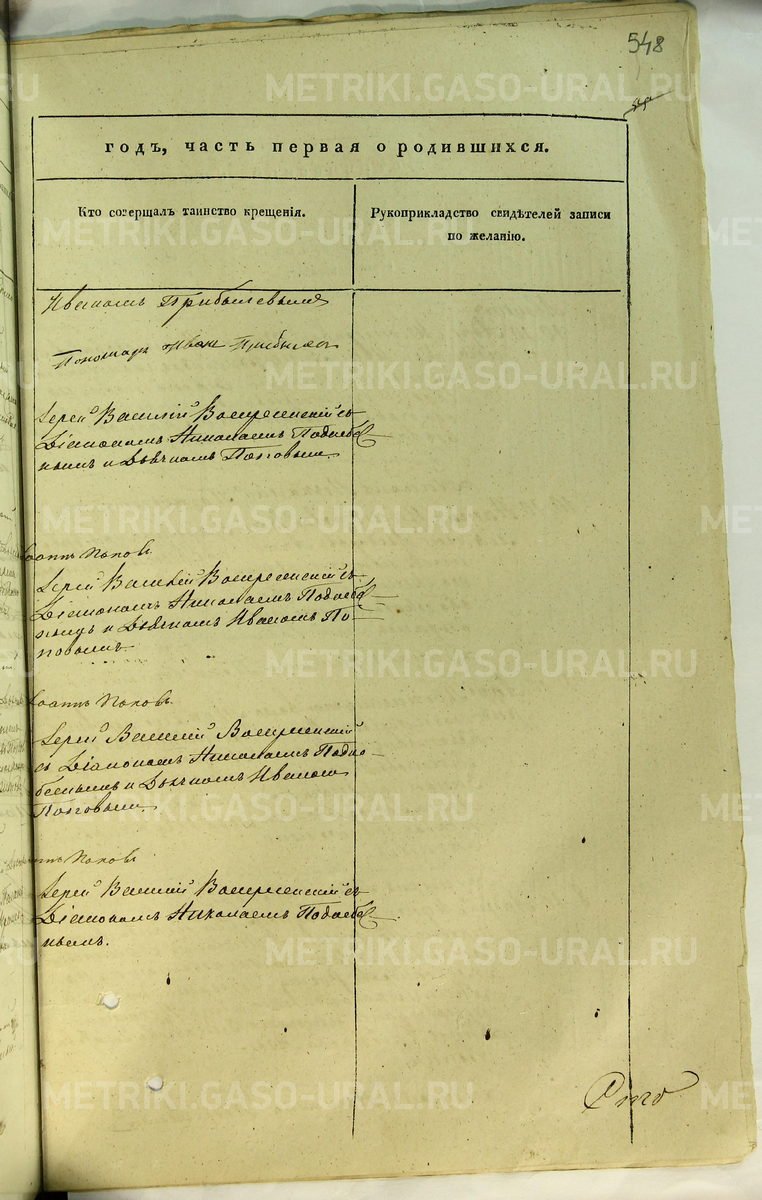 548
годъ, часть первая о родившихся.
Кто совершалъ таинство крещенія.
Рукоприкладство свидѣтелей записи
по желанію.
Иваномъ Прибылевымъ
Пономарь Иванъ Прибылевъ
Іерей Василій Воскресенскій съ
Діакономъ Николаемъ Поднебе
снымъ и Дьячкомъ Поповымъ.
Іоаннъ Поповъ
Іерей Василій Воскресенскій съ
Діакономъ Николаемъ Поднебе
снымъ и Дьячкомъ Иваномъ По-
повымъ.
Іоаннъ Поповъ
Іерей Василій Воскресенскій
съ Діакономъ Николаемъ Подне
беснымъ и Дьячкомъ Иваномъ
Поповымъ.
Поповъ
Іерей Василій Воскресенскій съ
Діакономъ Николаемъ Поднебе
снымъ.
METRIKI.GASO-URAL.RU